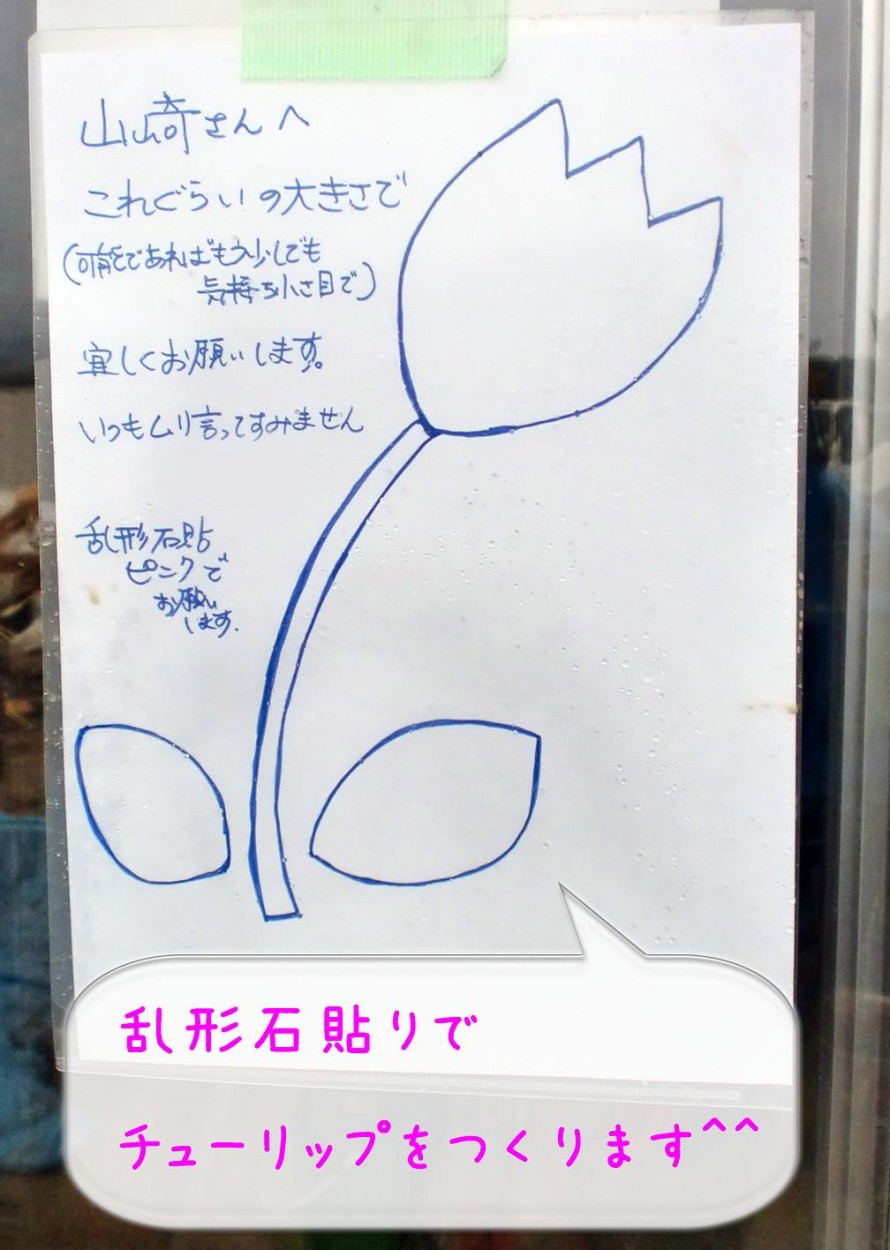 山崎さんへ
これぐらいの大きさで
(可能であればもう少しでも
気持ち小さ目で)
宜しくお願いします。
いつもムリ言ってすみません
乱形石貼
ピンクで
お願い
します.
乱形石貼りで
チューリップをつくります^^